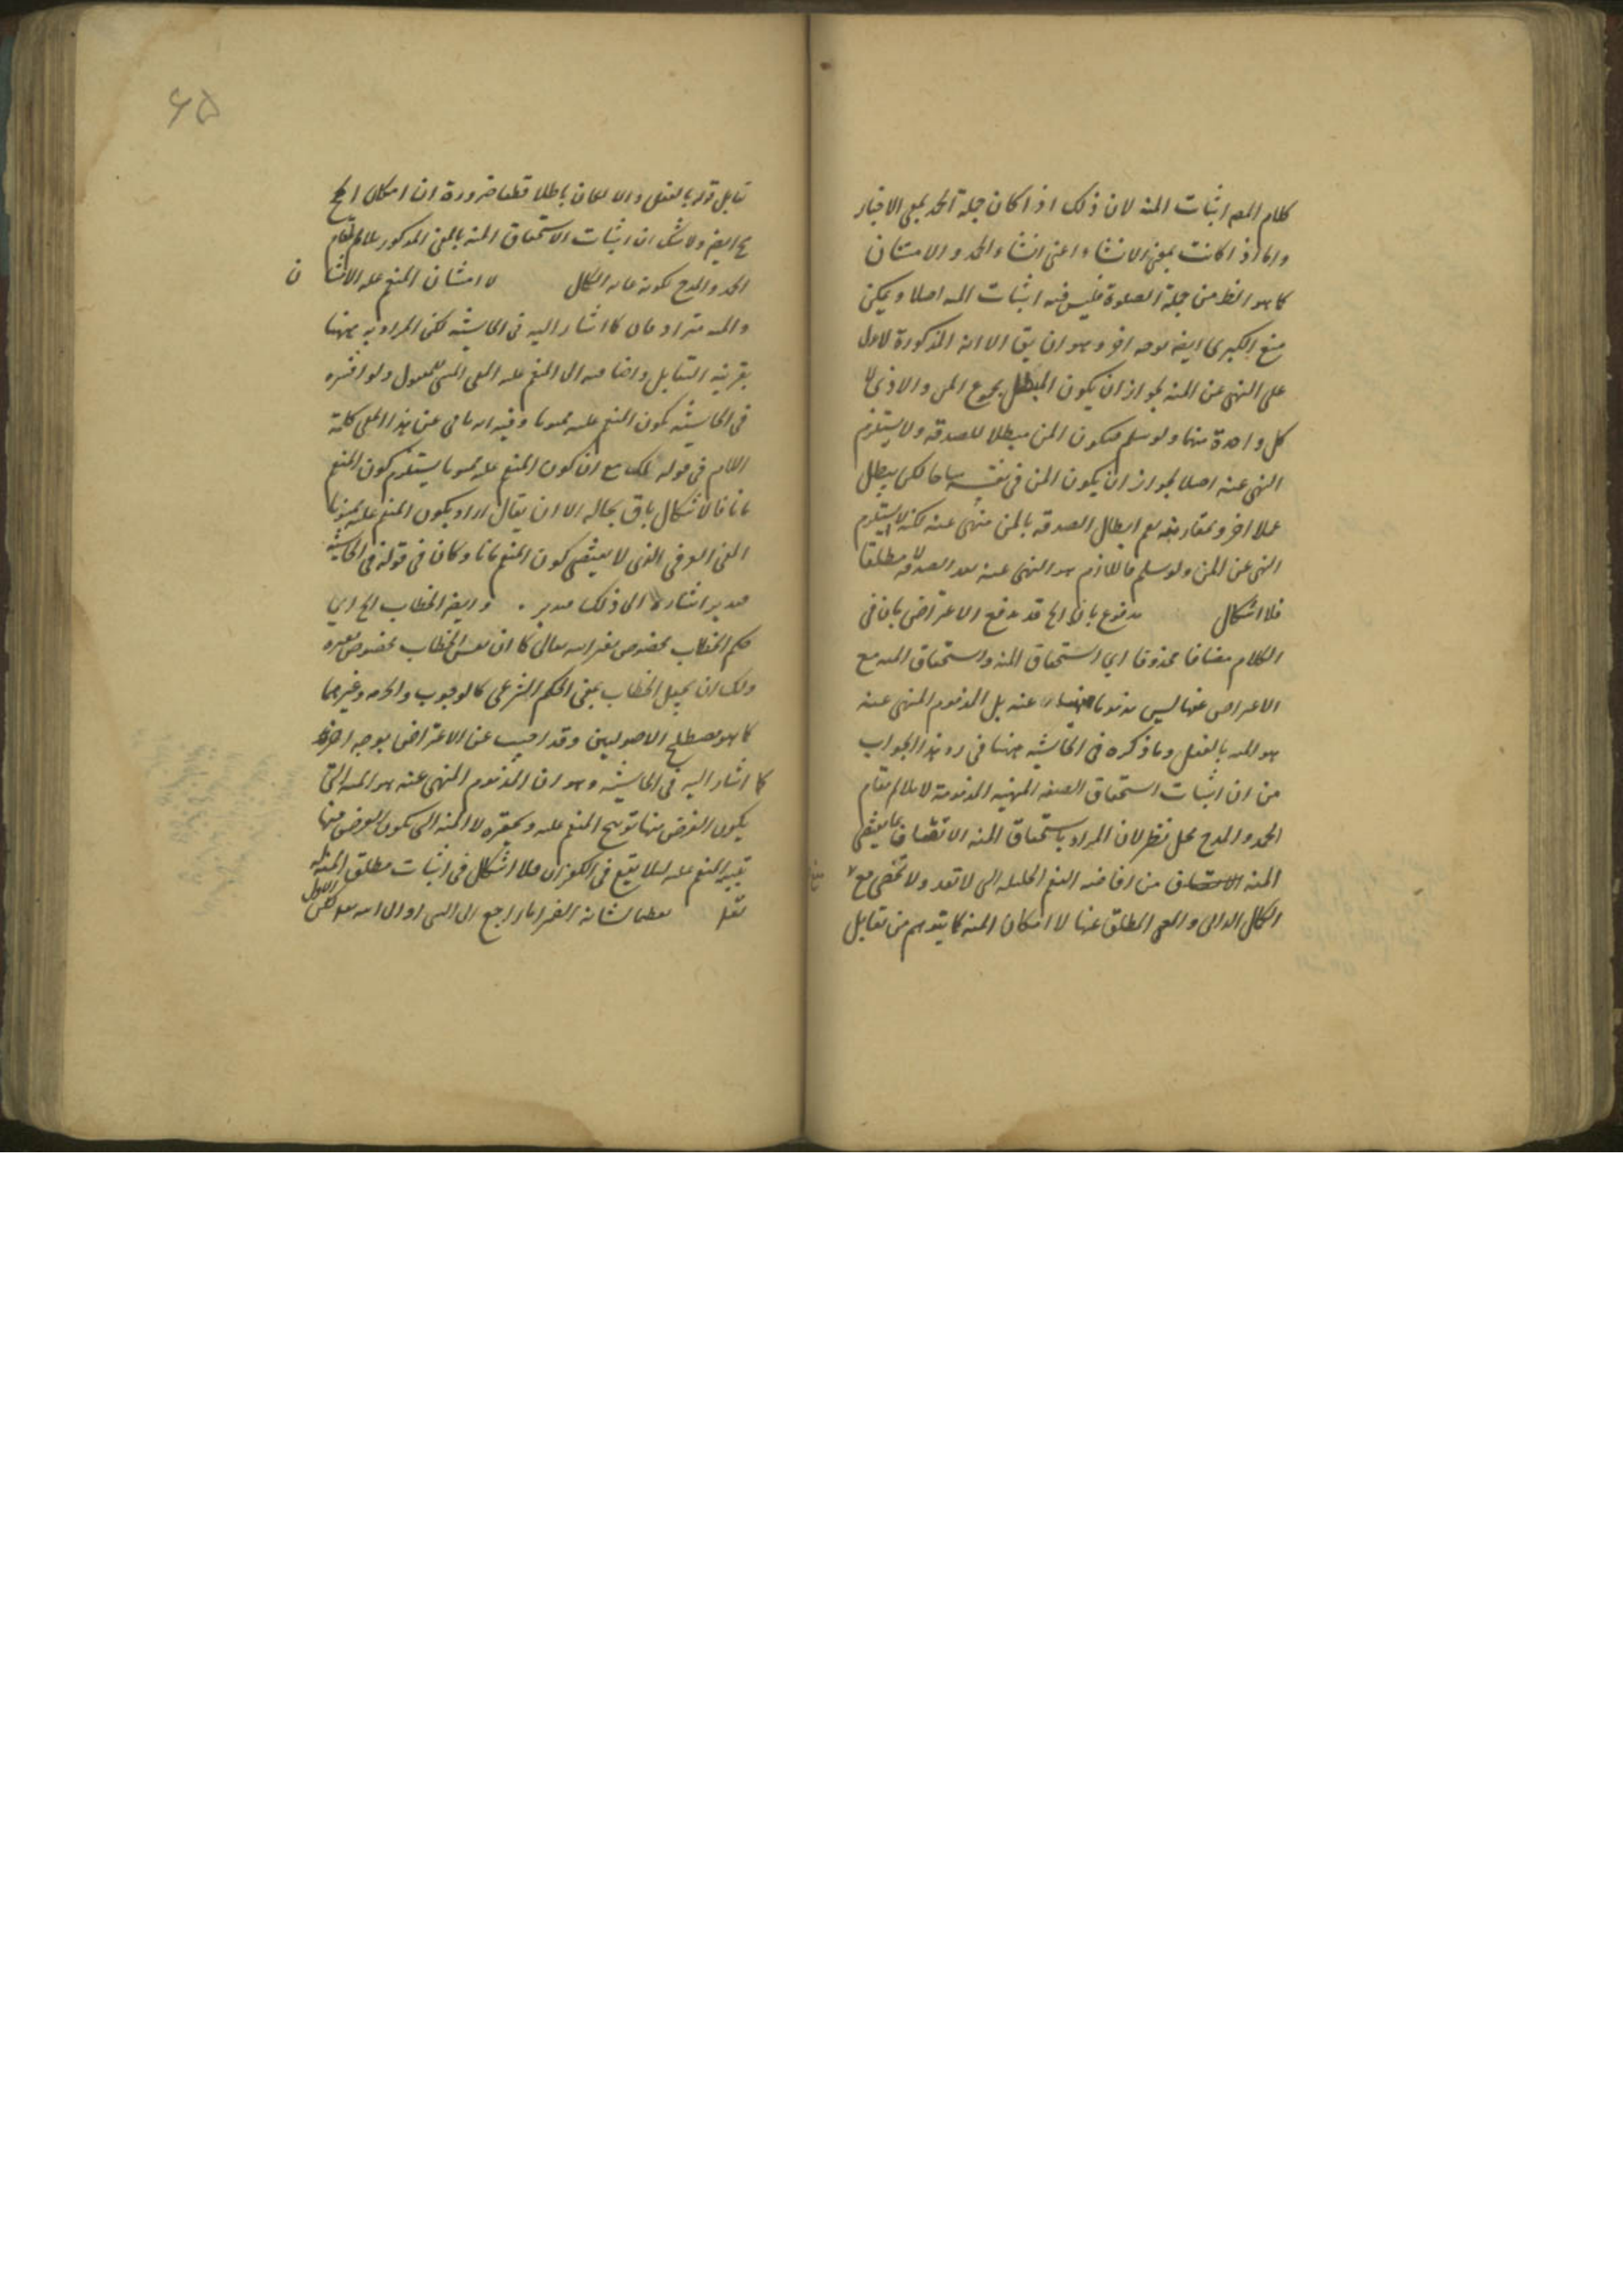 كلام المص اثبات المنه لان ذلك اذا كان جملة الحمد بمعنى الاخبار
واما اذا كانت بمعنى الانشاء اعنى انشاء الحمد والامتنان
كما هو الظ من جملة الصلوة فليس فيه اثبات المنه اصلا ويمكن
منع الكبرى ايضه بوجه اخر وهو ان يق الاية المذكورة لا تدل
على النهى عن المنه لجواز ان يكون المبطل مجموع المن والاذى لا
كل واحدة منها ولو سلم فيكون المن مبطلا للصدقه ولا يستلزم
النهى عنه اصلا لجواز ان يكون المن فى نفسه مباحا لكن يبطل
عملا اخر وبمقارنته نعم ابطال الصدقه بالمن منهى عنه لكنه لا يستلزم
النهى عن المن ولو سلم فاللازم هو النهى عنه بعد الصدقه لا مطلقا
فلا اشكال مدفوع بان الخ قد يدفع الاعتراض بان فى
الكلام مضافا محذوفا اي استحقاق المنه واستحقاق المنه مع
الاعراض عنها ليس مذموما منهيا عنه بل المذموم المنهى عنه
هو المنه بالفعل وما ذكره فى الحاشيه منها فى رد هذا الجواب
من ان اثبات استحقاق الصفه المنهيه المذمومة لا يلائم مقام
الحمد والمدح محل نظر لان المراد باستحقاق المنه الاتصاف بما يقتضى
المنه من افاضه النعم الجليله التى لا تعد ولا تحصى مع
الكمال الذاتى والغنى المطلق عنها لا امكان المنه كما يتوهم من تقابل
٦٥
تقابل قوله بالفعل والا لكان باطلا قطعا ضرورة ان امكان الخ
ايضه ولا شك ان اثبات الاستحقاق المنه بالمعنى المذكور يلائم مقام
الحمد والمدح لكونه غايه الكمال لا امتنان المنعم عليه الامتنان
والمنه مترادفان كما اشار اليه فى الحاشيه لكن المراد به ههنا
بقرينه التقابل واضافته الى المنعم عليه المعنى المبنى للمفعول ولذا فسره
فى الحاشيه بكون المنعم عليه ممنونا وفيه انه يابى عن هذا المعنى كلمة
اللام فى قوله لك مع ان كون المنعم عليه ممنونا يستلزم كون المنعم
مانا فالاشكال باق بحاله الا ان يقال اراد بكون المنعم عليه ممنونا
المعنى العرفى الذى لا يقتضى كون المنعم مانا وكان فى قوله فى الحاشيه
فتدبر اشارة الى ذلك فتدبر . وايضه الخطاب الخ اي
حكم الخطاب مخصوص بغير الله تعالى كما ان نفس الخطاب مخصوص بغيره
ولك ان تجعل الخطاب بمعنى الحكم الشرعى كالوجوب والحرمه وغيرهما
كما هو مصطلح الاصوليين وقد اجيب عن الاعتراض بوجه اخر
كما اشار اليه فى الحاشيه وهو ان المذموم المنهى عنه هو المنه التى
يكون الغرض منها توبيخ المنعم عليه وتحقيره لا المنه التى يكون الغرض منها
تنبيه المنعم عليه لئلا يقع فى الكفران فلا اشكال فى اثبات مطلق المنه لله
تعظيما لشانه الضمير اما راجع الى النبى او الى الله تعالى لكن الاول